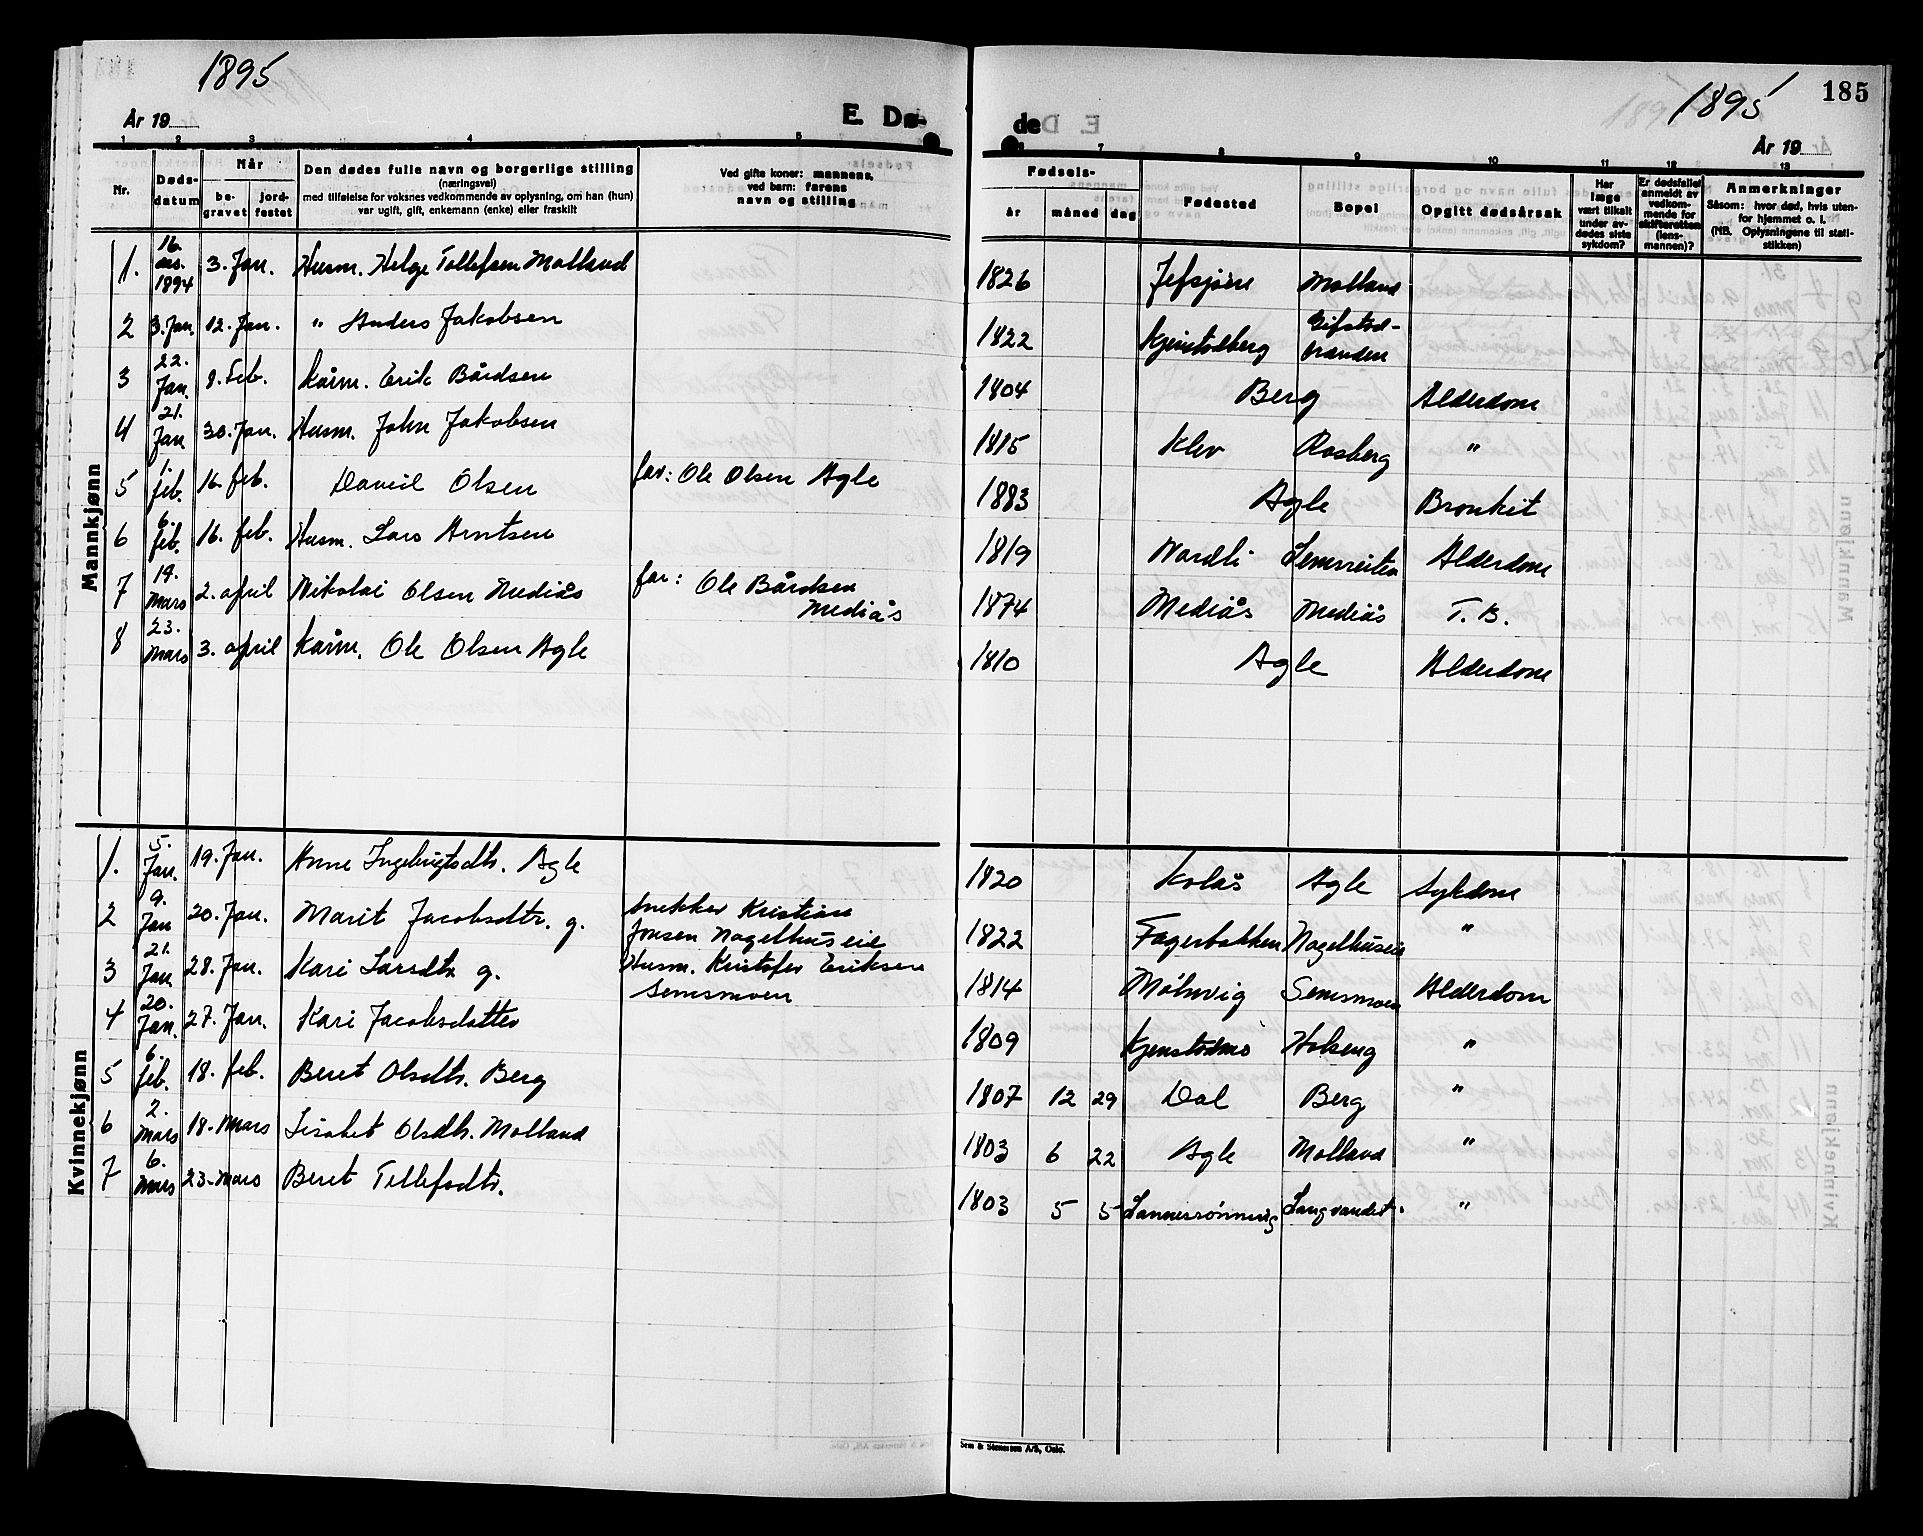 1895
1895
185
År 19
E. Dø-
de
År 19
1 2 3 4 5 7 8 9 10 11 12 13
Nr.
Døds-
datum
Når
be-
gravet
jord-
festet
Den dødes fulle navn og borgerlige stilling
(næringsvei)
med tilføielse for voksnes vedkommende av oplysning, om han (hun)
var ugift, gift, enkemann (enke) eller fraskilt
Ved gifte koner: mannens,
ved barn: farens
navn og stilling
Fødsels-
år
måned
dag
Fødested
Bopel
Opgitt dødsårsak
Har
læge
vært tilkalt
under av-
dødes siste
sykdom?
Er dødsfallet
anmeldt av
vedkom-
mende for
skifteretten
(lens-
mannen)?
Anmerkninger
Såsom: hvor død, hvis uten-
for hjemmet o. l.
(NB. Oplysningene til stati-
stikken)
Mannkjønn
1. 16. des. 1894 3. Jan. Husm. Helge Tollefsen Molland 1826 Molland
2 3. Jan. 12. Jan. " Anders Jakobsen 1822 Kjenstadberg
3 22. Jan. 8. Feb. Kårm. Erik Bårdsen 1804 Berg Alderdom
4 21. Jan 30. Jan. Husm. John Jakobsen 1815 Klev Rosberg "
5 1. feb. 16. feb. Daniel Olsen far: Ole Olsen Agle 1883 Agle Bronkit
6 6. feb. 16. feb. Husm. Lars Arntsen 1819 Nordli Alderdom
7 19. Mars 2. april Nikolai Olsen Mediås far: Ole Bårdsen Mediås 1874 Mediås Mediås T. B.
8 23. Mars 3. april Kårm. Ole Olsen Agle 1810 Agle Alderdom
Kvinnekjønn
1. 5. Jan. 19. Jan. Anne Ingebrigtsdtr. Agle 1820 Kolås Agle Sykdom
2 9. Jan 20. Jan. Marit Jacobsdtr. g. Snekker Kristian Jonsen Nagelhus eie 1822 Fagerbakken Nagelhuseie "
3 21. Jan 28. Jan. Kari Larsdtr g. Husm. Kristofer Eriksen Semsmoen 1814 Møhnvig Semsmoen Alderdom
4 20. Jan. 27. Jan. Kari Jacobsdatter 1809 Kjenstadmo Holseng "
5 6. feb. 18. feb. Beret Olsdtr. Berg 1807 12 29 Dal Berg "
6 2. Mars 18. Mars Lisabet Olsdtr. Molland 1803 6 22 Agle Molland "
7 6. Mars 23. Mars Beret Tollefsdtr. 1803 5 5 Langvandet. "
Sem & Stenersen A/S, Oslo.